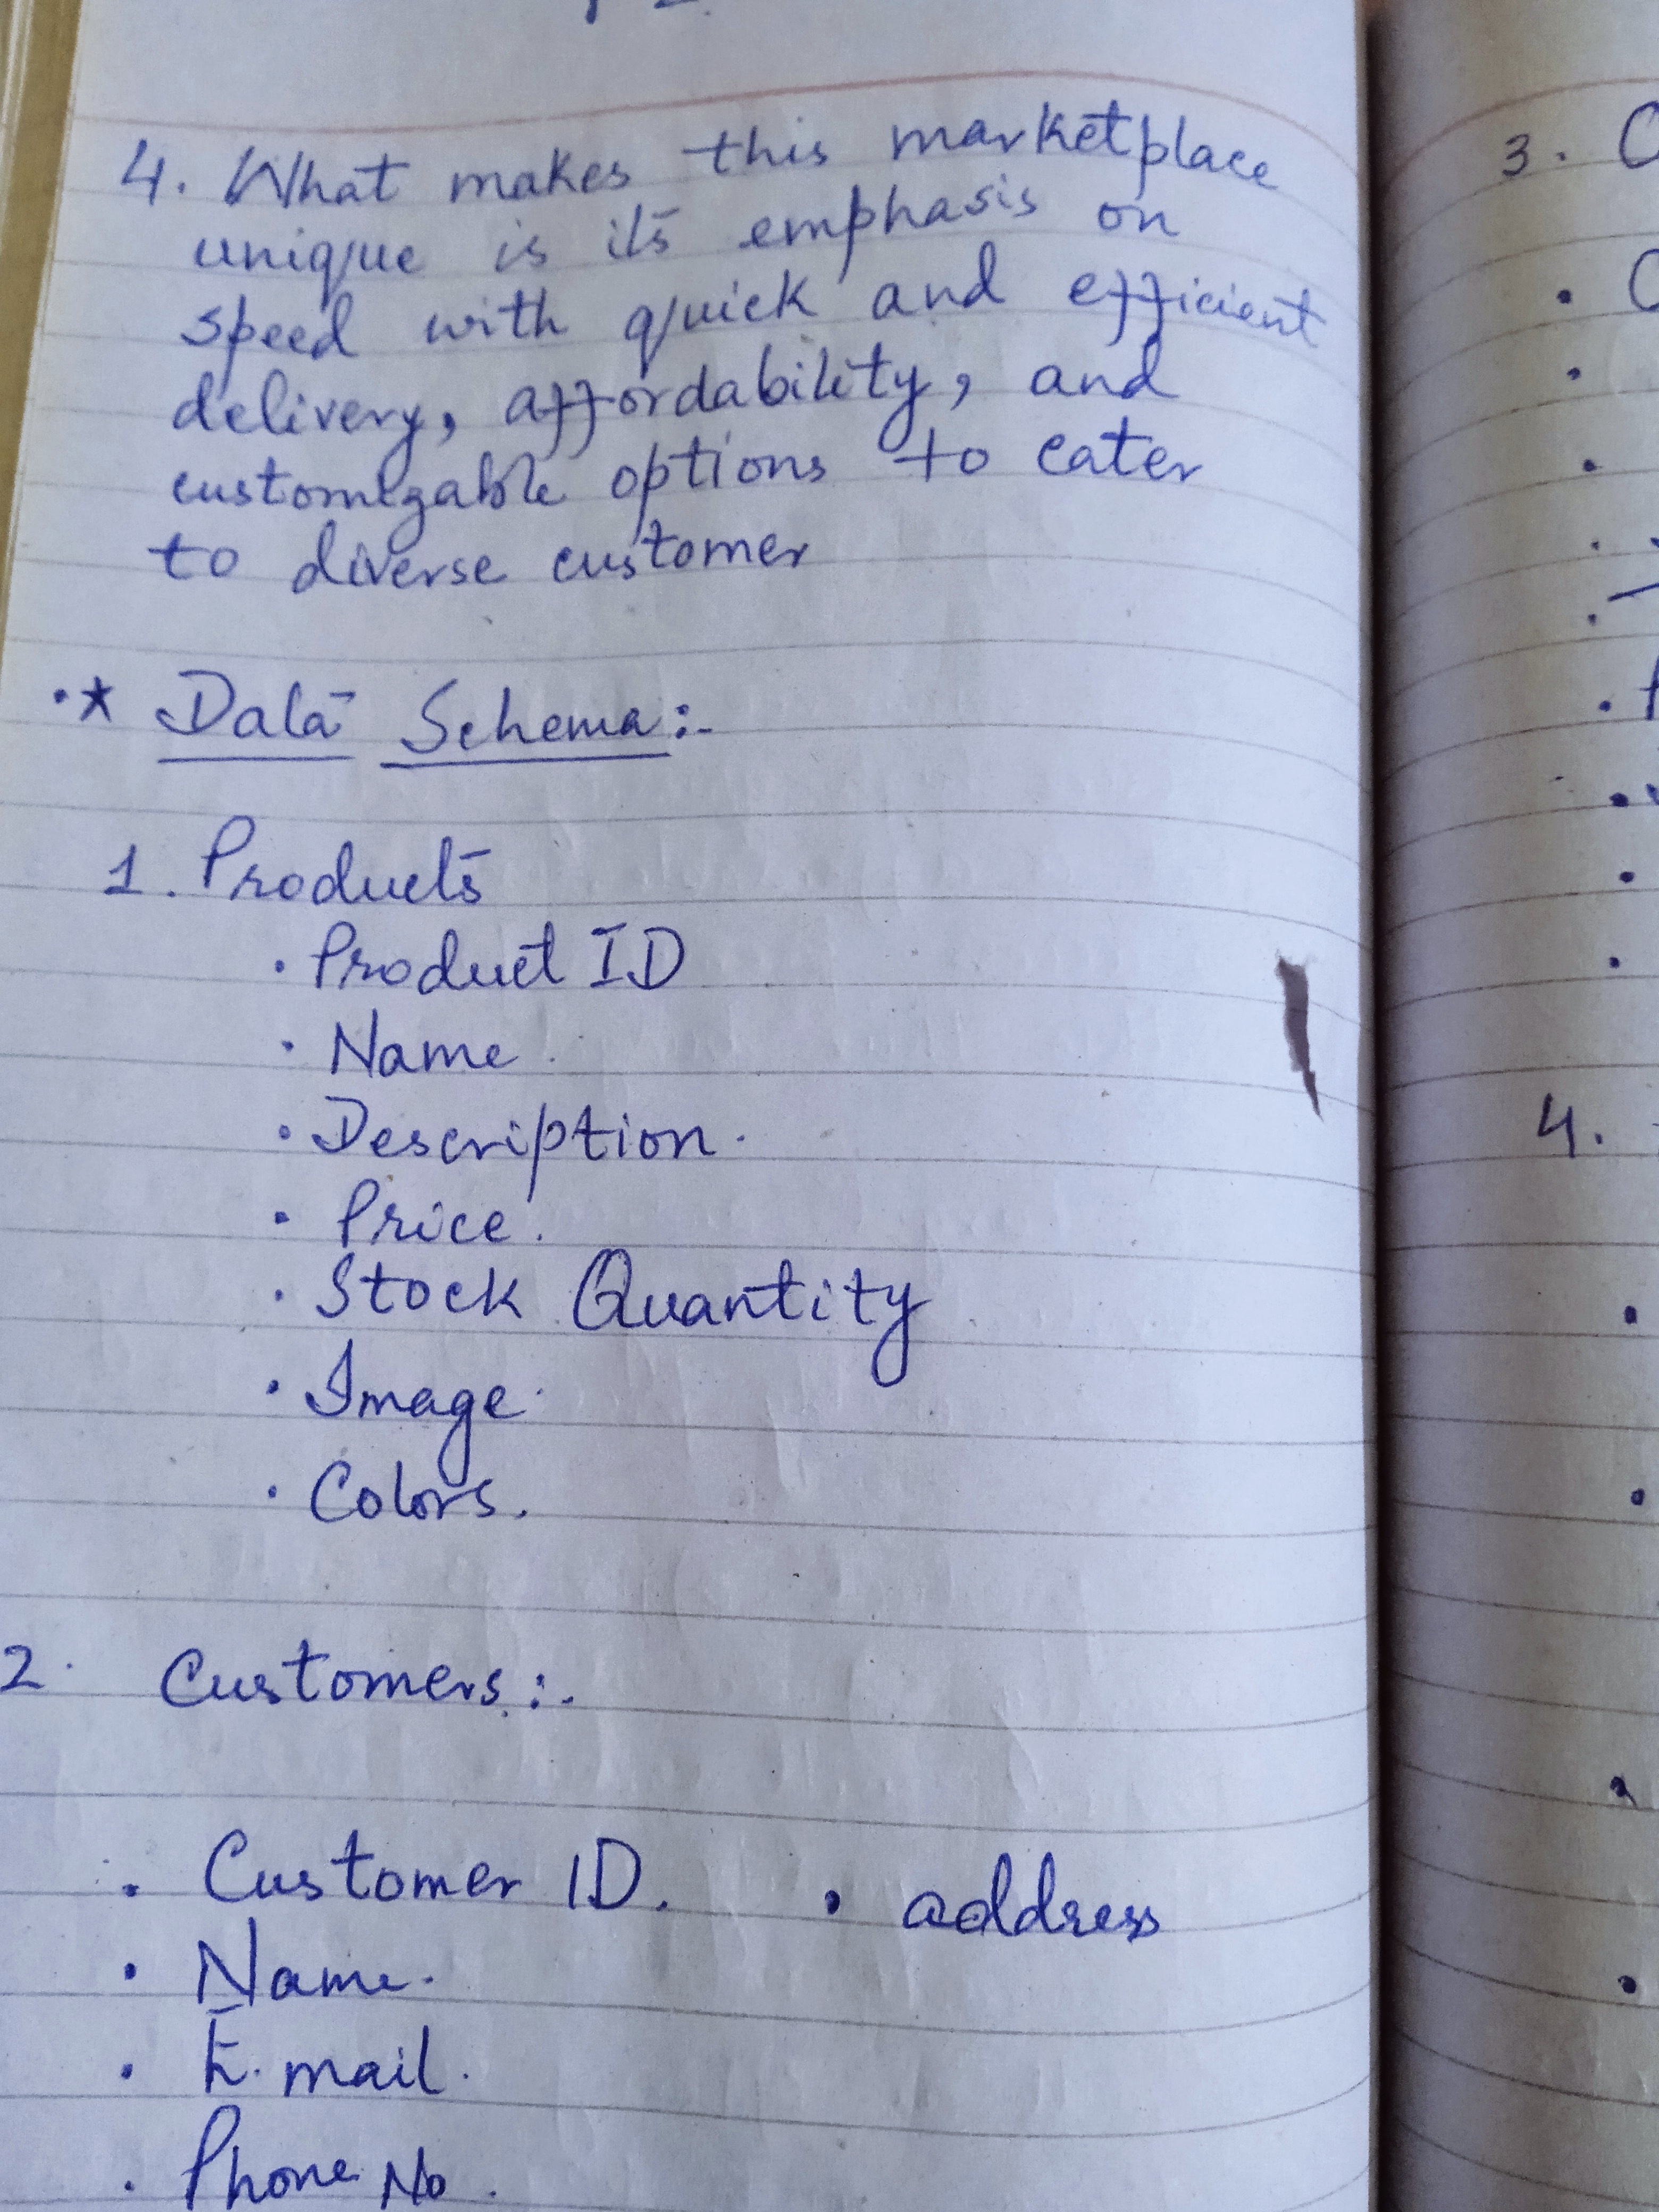 4. What makes this marketplace
unique is its emphasis on
speed with quick and efficient
delivery, affordability, and
customizable options to cater
to diverse customer
·* Data Schema:-
1. Products
· Product ID
· Name
· Description.
· Price.
· Stock Quantity
· Image
· Colors.
2. Customers:-
· Customer ID. · address
· Name.
· E.mail.
· Phone No.
3. C
· C
4.